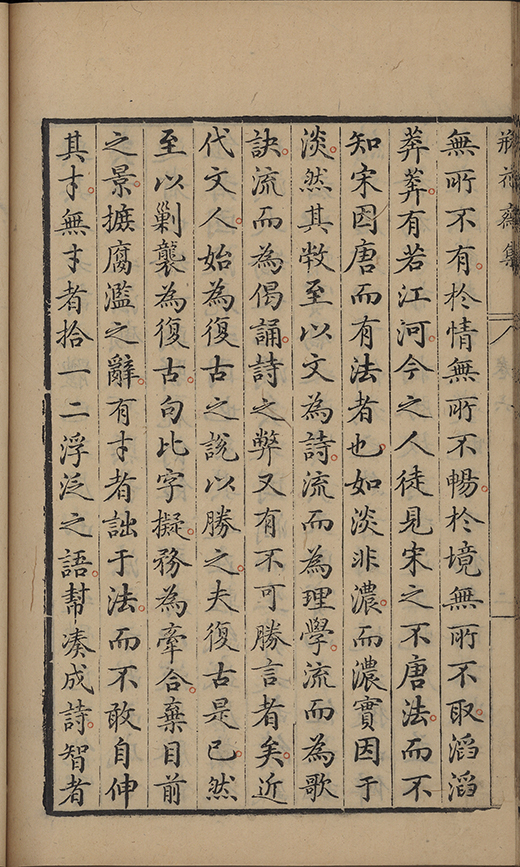 瓶花齋集
無所不有於情無所不暢於境無所不取滔滔
莽莽有若江河今之人徒見宋之不唐法而不
知宋因唐而有法者也如淡非濃而濃實因于
淡然其敝至以文為詩流而為理學流而為歌
訣流而為偈誦詩之弊又有不可勝言者矣近
代文人始為復古之說以勝之夫復古是已然
至以剿襲為復古句比字擬務為牽合棄目前
之景摭腐濫之辭有才者詘于法而不敢自伸
其才無才者拾一二浮泛之語幫湊成詩智者